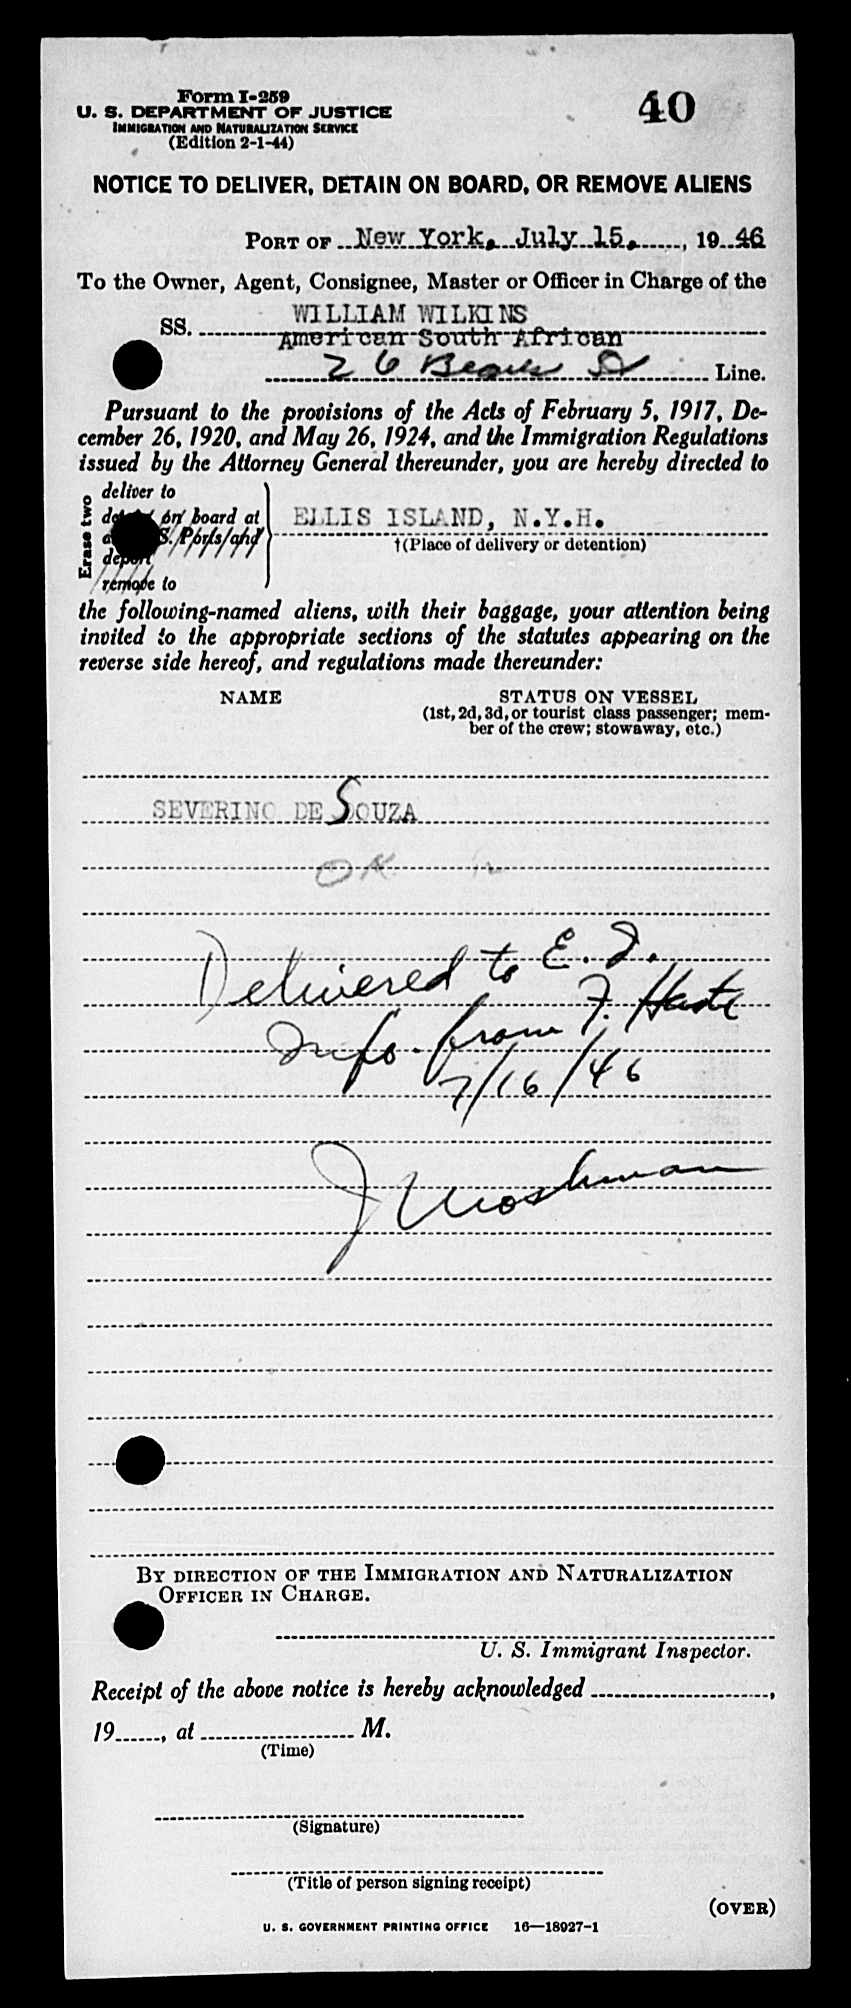 Form I-259
40
U. S. DEPARTMENT OF JUSTICE
IMMIGRATION AND NATURALIZATION SERVICE
(Edition 2-1-44)
NOTICE TO DELIVER, DETAIN ON BOARD, OR REMOVE ALIENS
PORT OF New York, July 15, , 19 46
To the Owner, Agent, Consignee, Master or Officer in Charge of the
SS. WILLIAM WILKINS
American South African
26 Beaver St Line.
Pursuant to the provisions of the Acts of February 5, 1917, De-
cember 26, 1920, and May 26, 1924, and the Immigration Regulations
issued by the Attorney General thereunder, you are hereby directed to
Erase two
deliver to
on board at ELLIS ISLAND, N.Y.H.
S. Ports/and †(Place of delivery or detention)
deport
remove to
the following-named aliens, with their baggage, your attention being
invited to the appropriate sections of the statutes appearing on the
reverse side hereof, and regulations made thereunder:
NAME STATUS ON VESSEL
(1st, 2d, 3d, or tourist class passenger; mem-
ber of the crew; stowaway, etc.)
SEVERINO DE SOUZA
OK
Delivered to E. I.
Info. from F.
7/16/46
BY DIRECTION OF THE IMMIGRATION AND NATURALIZATION
OFFICER IN CHARGE.
U. S. Immigrant Inspector.
Receipt of the above notice is hereby acknowledged ,
19 , at M.
(Time)
(Signature)
(Title of person signing receipt)
(OVER)
U. S. GOVERNMENT PRINTING OFFICE 16—18927-1